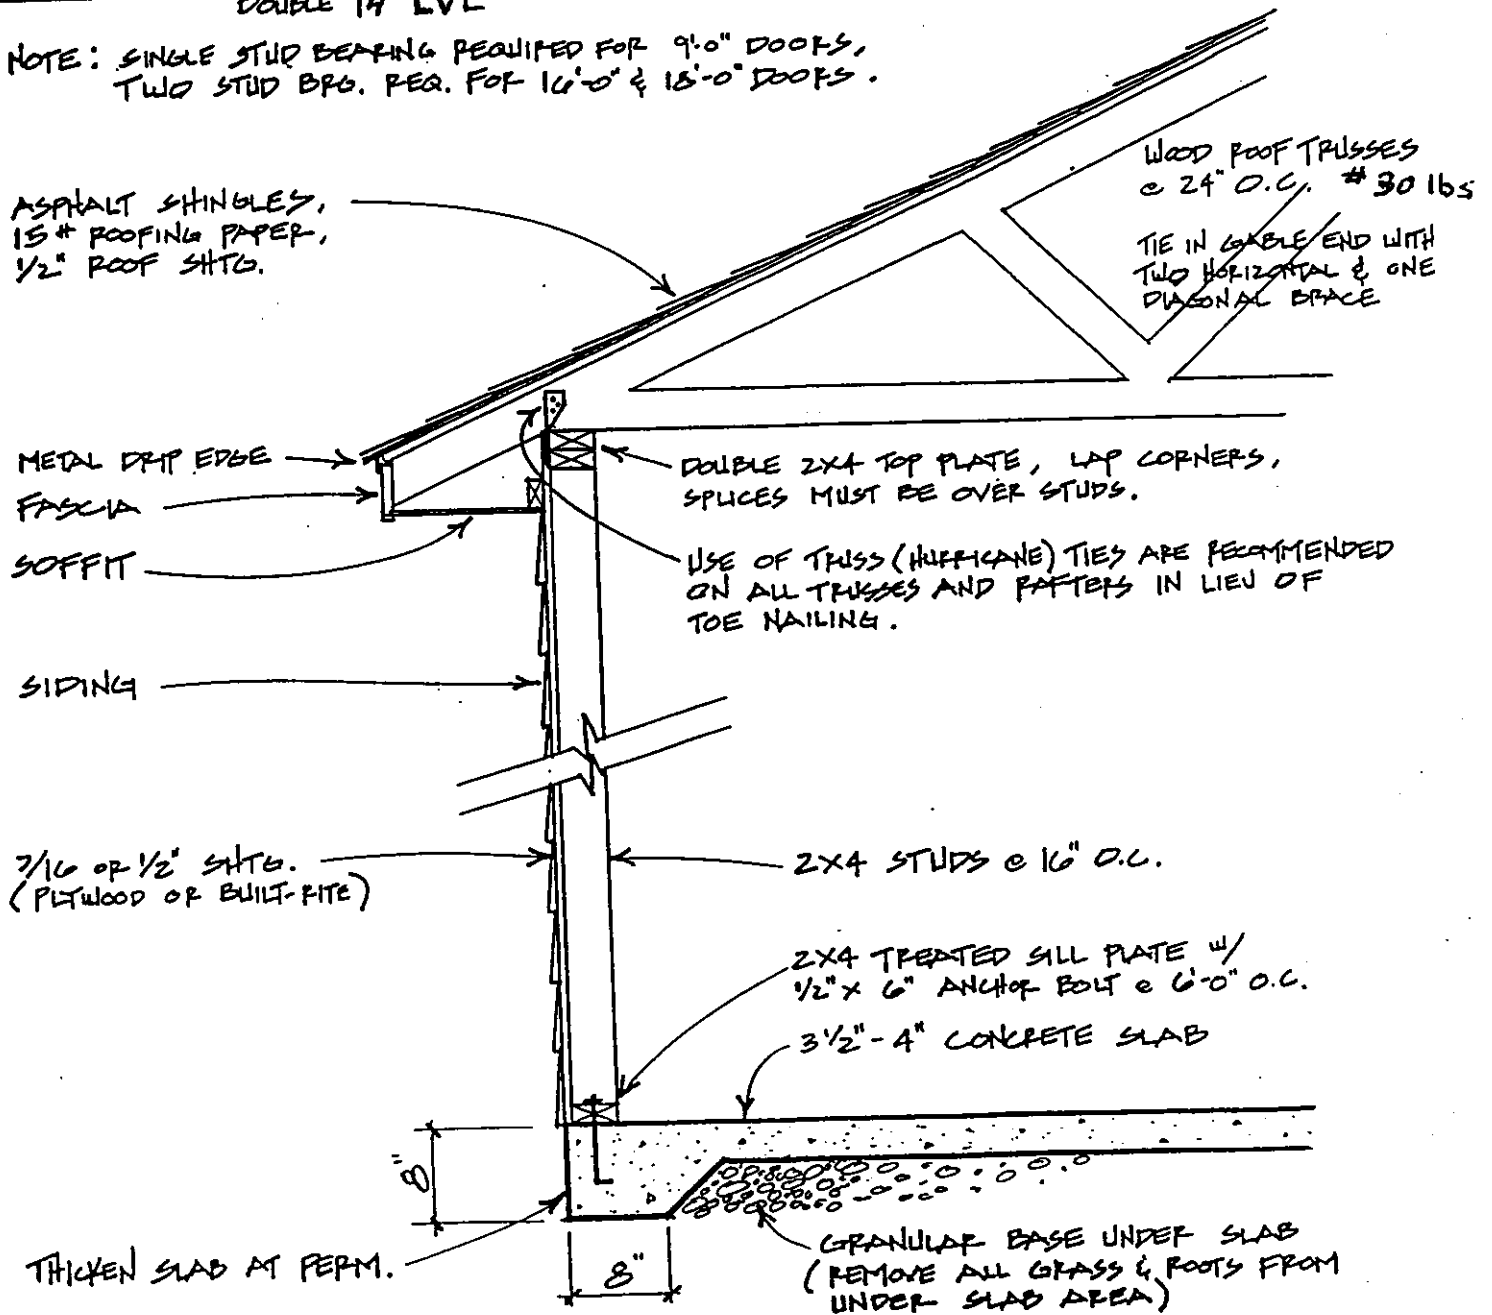 DOUBLE 14" LVL
NOTE: SINGLE STUD BEARING REQUIRED FOR 9'-0" DOORS,
TWO STUD BRG. REQ. FOR 16'-0" & 18'-0" DOORS.
WOOD ROOF TRUSSES
@ 24" O.C. # 30 lbs
TIE IN GABLE END WITH
TWO HORIZONTAL & ONE
DIAGONAL BRACE
ASPHALT SHINGLES,
15# ROOFING PAPER,
1/2" ROOF SHTG.
METAL DRIP EDGE
FASCIA
SOFFIT
DOUBLE 2X4 TOP PLATE, LAP CORNERS,
SPLICES MUST BE OVER STUDS.
USE OF TRUSS (HURRICANE) TIES ARE RECOMMENDED
ON ALL TRUSSES AND RAFTERS IN LIEU OF
TOE NAILING.
SIDING
7/16 OR 1/2" SHTG.
(PLYWOOD OR BUILT-RITE)
2X4 STUDS @ 16" O.C.
2X4 TREATED SILL PLATE W/
1/2" X 6" ANCHOR BOLT @ 6'-0" O.C.
3 1/2" - 4" CONCRETE SLAB
8"
THICKEN SLAB AT PERM.
8"
GRANULAR BASE UNDER SLAB
(REMOVE ALL GRASS & ROOTS FROM
UNDER SLAB AREA)